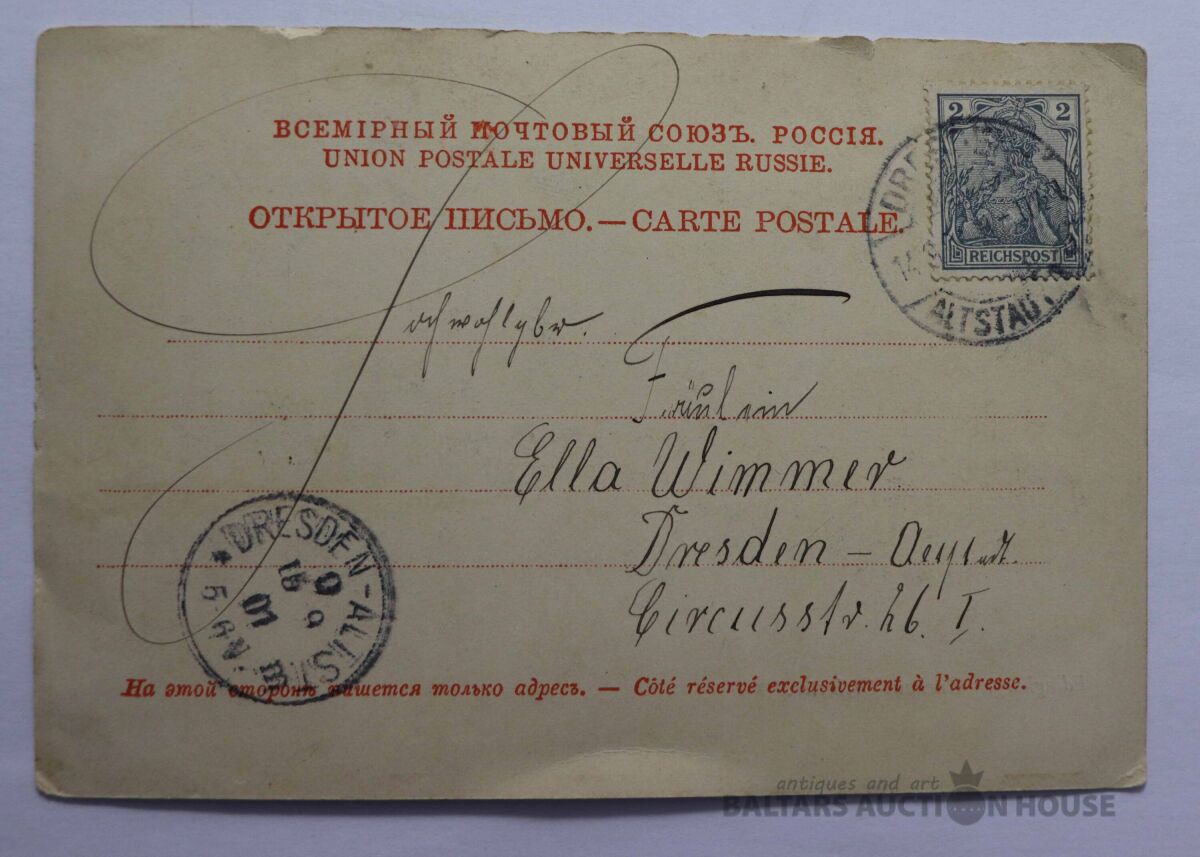 ВСЕМІРНЫЙ ПОЧТОВЫЙ СОЮЗЪ. РОССІЯ.
UNION POSTALE UNIVERSELLE RUSSIE.
ОТКРЫТОЕ ПИСЬМО. — CARTE POSTALE.
2 2
REICHSPOST
ALTSTADT
Hochwohlgbr.
Fräulein
Ella Wimmer
Dresden –
Circusstr. 26. I.
* DRESDEN-ALTST.
01
5-6 N.
На этой сторонѣ пишется только адресъ. — Côté réservé exclusivement à l'adresse.
antiques and art
BALTARS AUCTION HOUSE